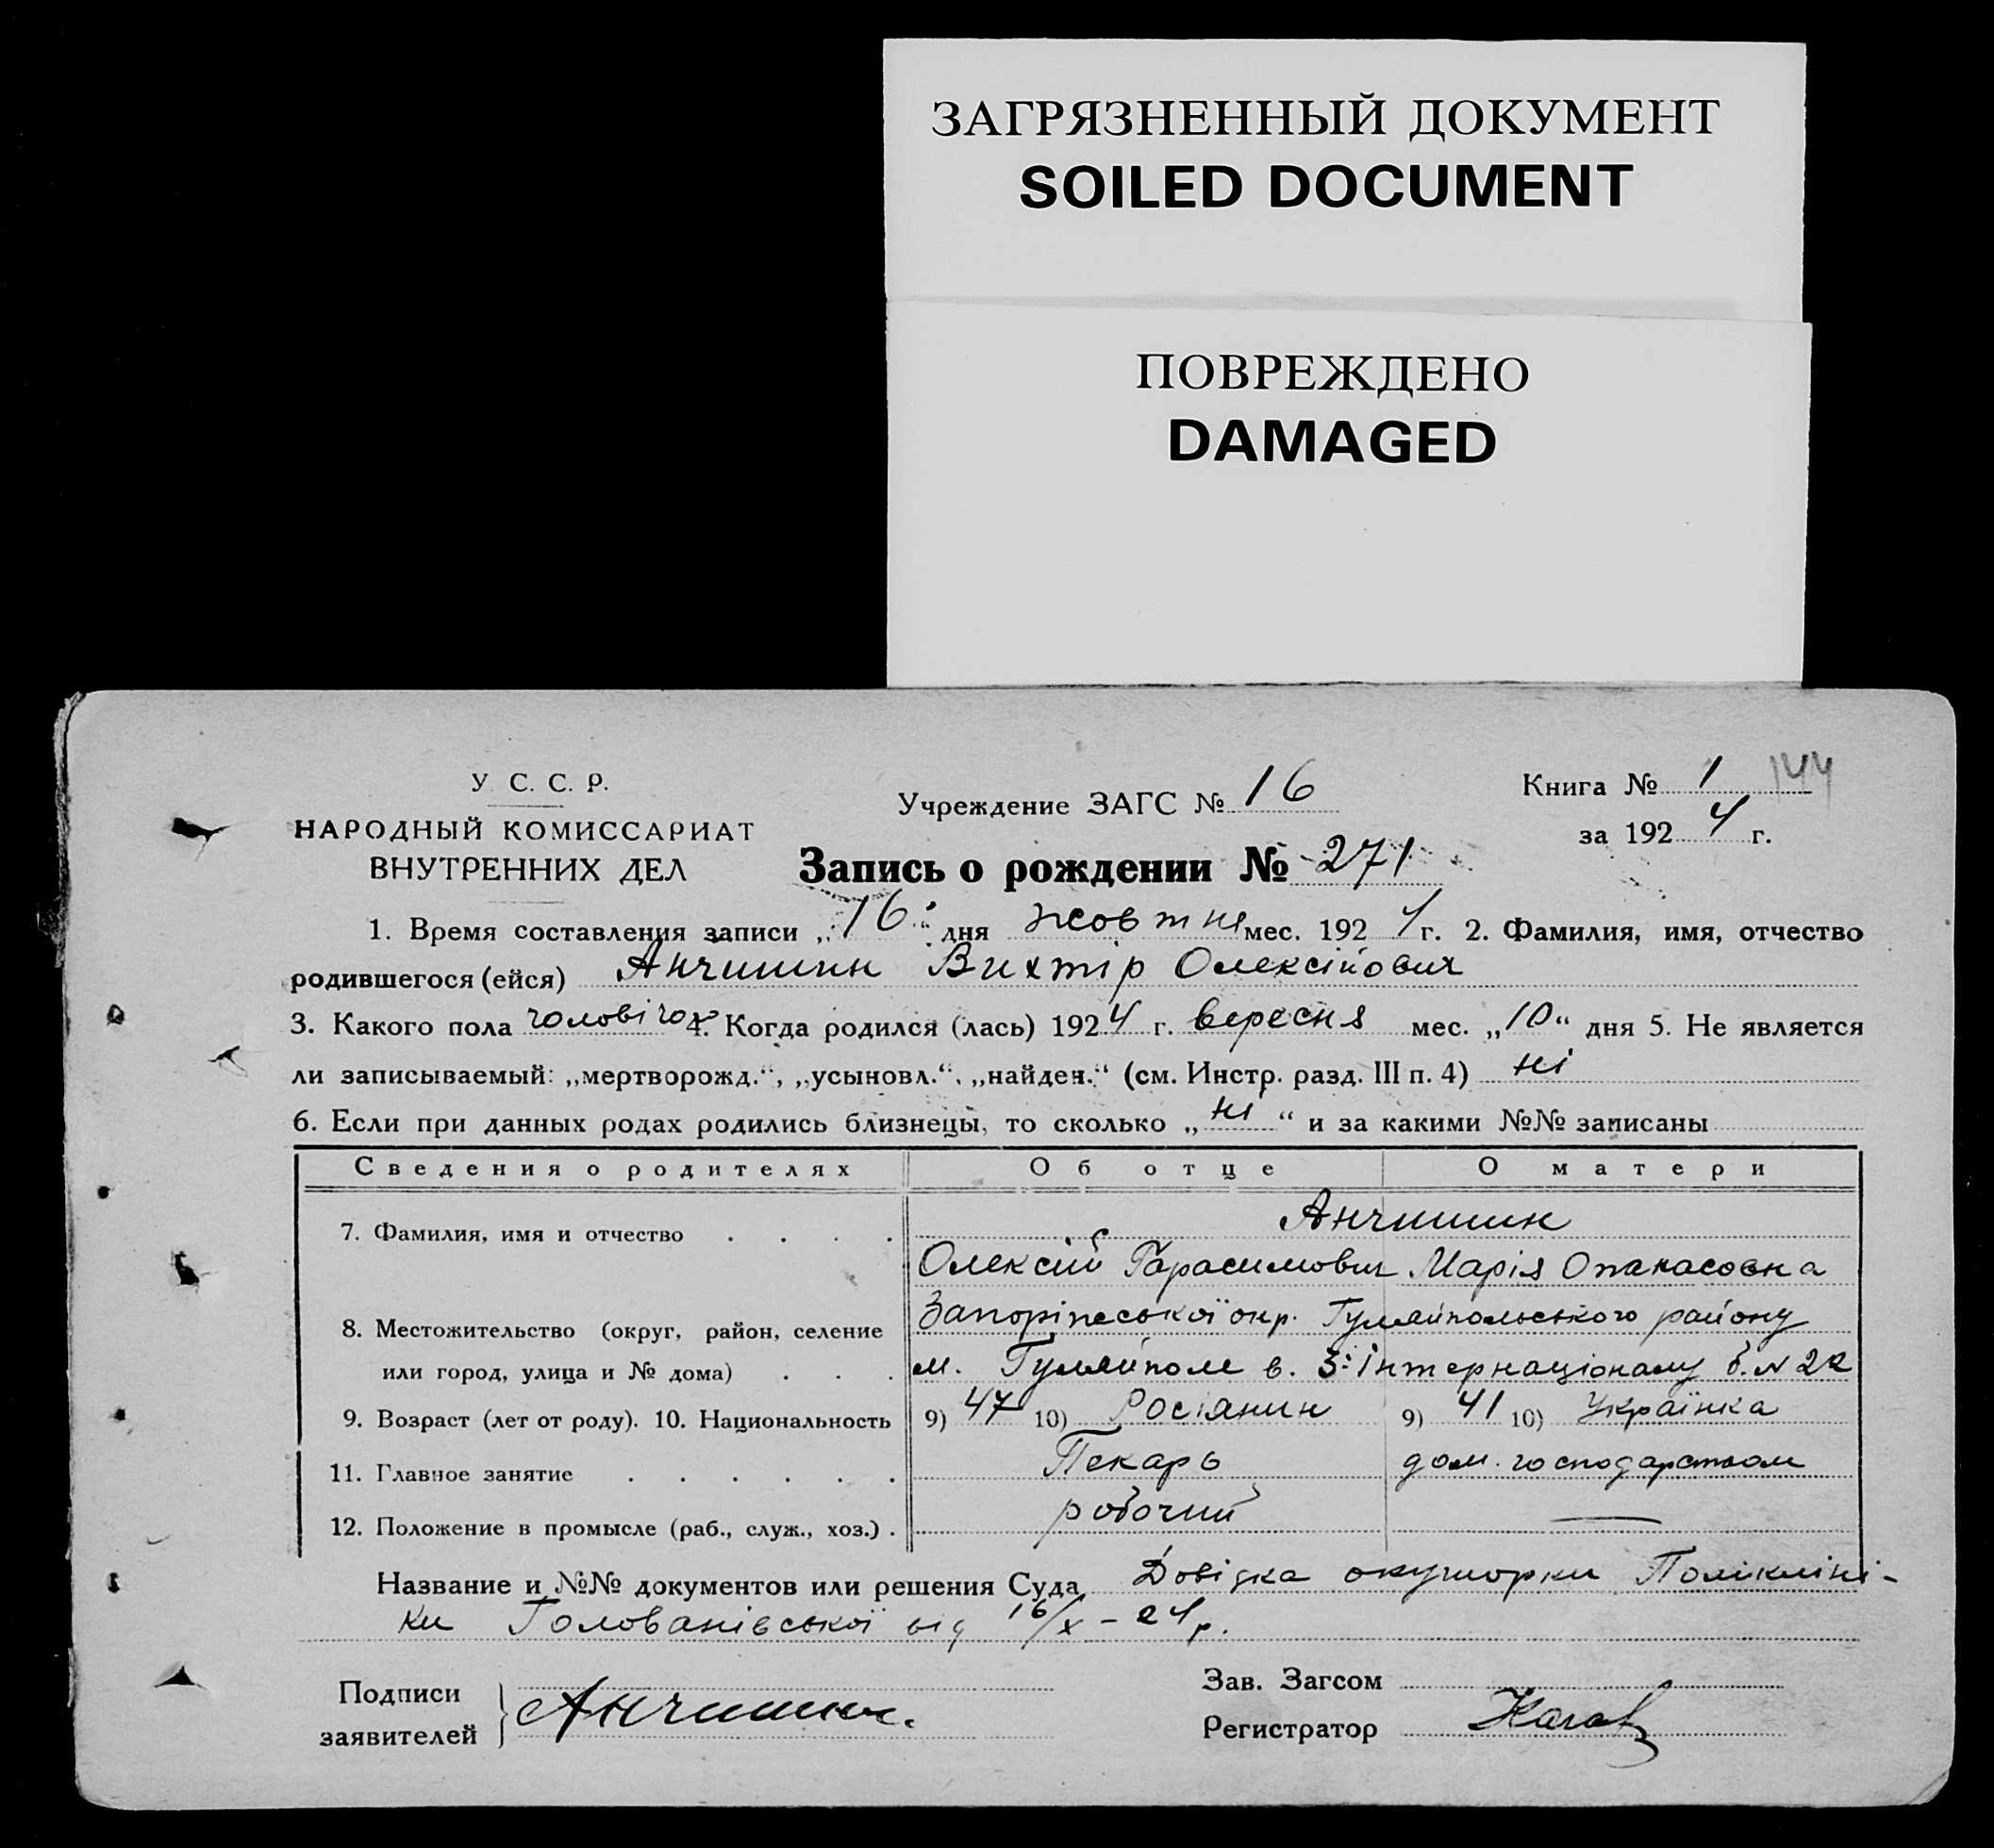 ЗАГРЯЗНЕННЫЙ ДОКУМЕНТ
SOILED DOCUMENT
ПОВРЕЖДЕНО
DAMAGED
У. С. С. Р.
НАРОДНЫЙ КОМИССАРИАТ
ВНУТРЕННИХ ДЕЛ
Учреждение ЗАГС № 16
Книга № 1 144
за 1924 г.
Запись о рождении № 271
1. Время составления записи „16“ дня жовтня мес. 1924 г. 2. Фамилия, имя, отчество
родившегося (ейся) Анчишин Вихтір Олексійович
3. Какого пола чоловічоі 4. Когда родился (лась) 1924 г. вересня мес. „10“ дня 5. Не является
ли записываемый: „мертворожд.“, „усыновл.“, „найден.“ (см. Инстр. разд. III п. 4) ні
6. Если при данных родах родились близнецы, то сколько „ні“ и за какими №№ записаны
Сведения о родителях Об отце О матери
7. Фамилия, имя и отчество Анчишин
Олексій Гарасимович Марія Опанасовна
8. Местожительство (округ, район, селение Запоріжської окр. Гуляйпольського району
или город, улица и № дома) м. Гуляйполе в. 3 Інтернаціоналу б. № 22
9. Возраст (лет от роду). 10. Национальность 9) 47 10) Росіянин 9) 41 10) Українка
11. Главное занятие Пекарь дом. господарством
12. Положение в промысле (раб., служ., хоз.) робочий —
Название и №№ документов или решения Суда Довідка окушорки Поликліні-
ки Голованівської від 16/X – 24 р.
Подписи
заявителей Анчишин.
Зав. Загсом
Регистратор